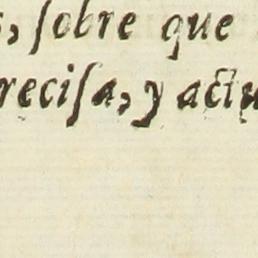 , ſobre que
reciſa, y actu